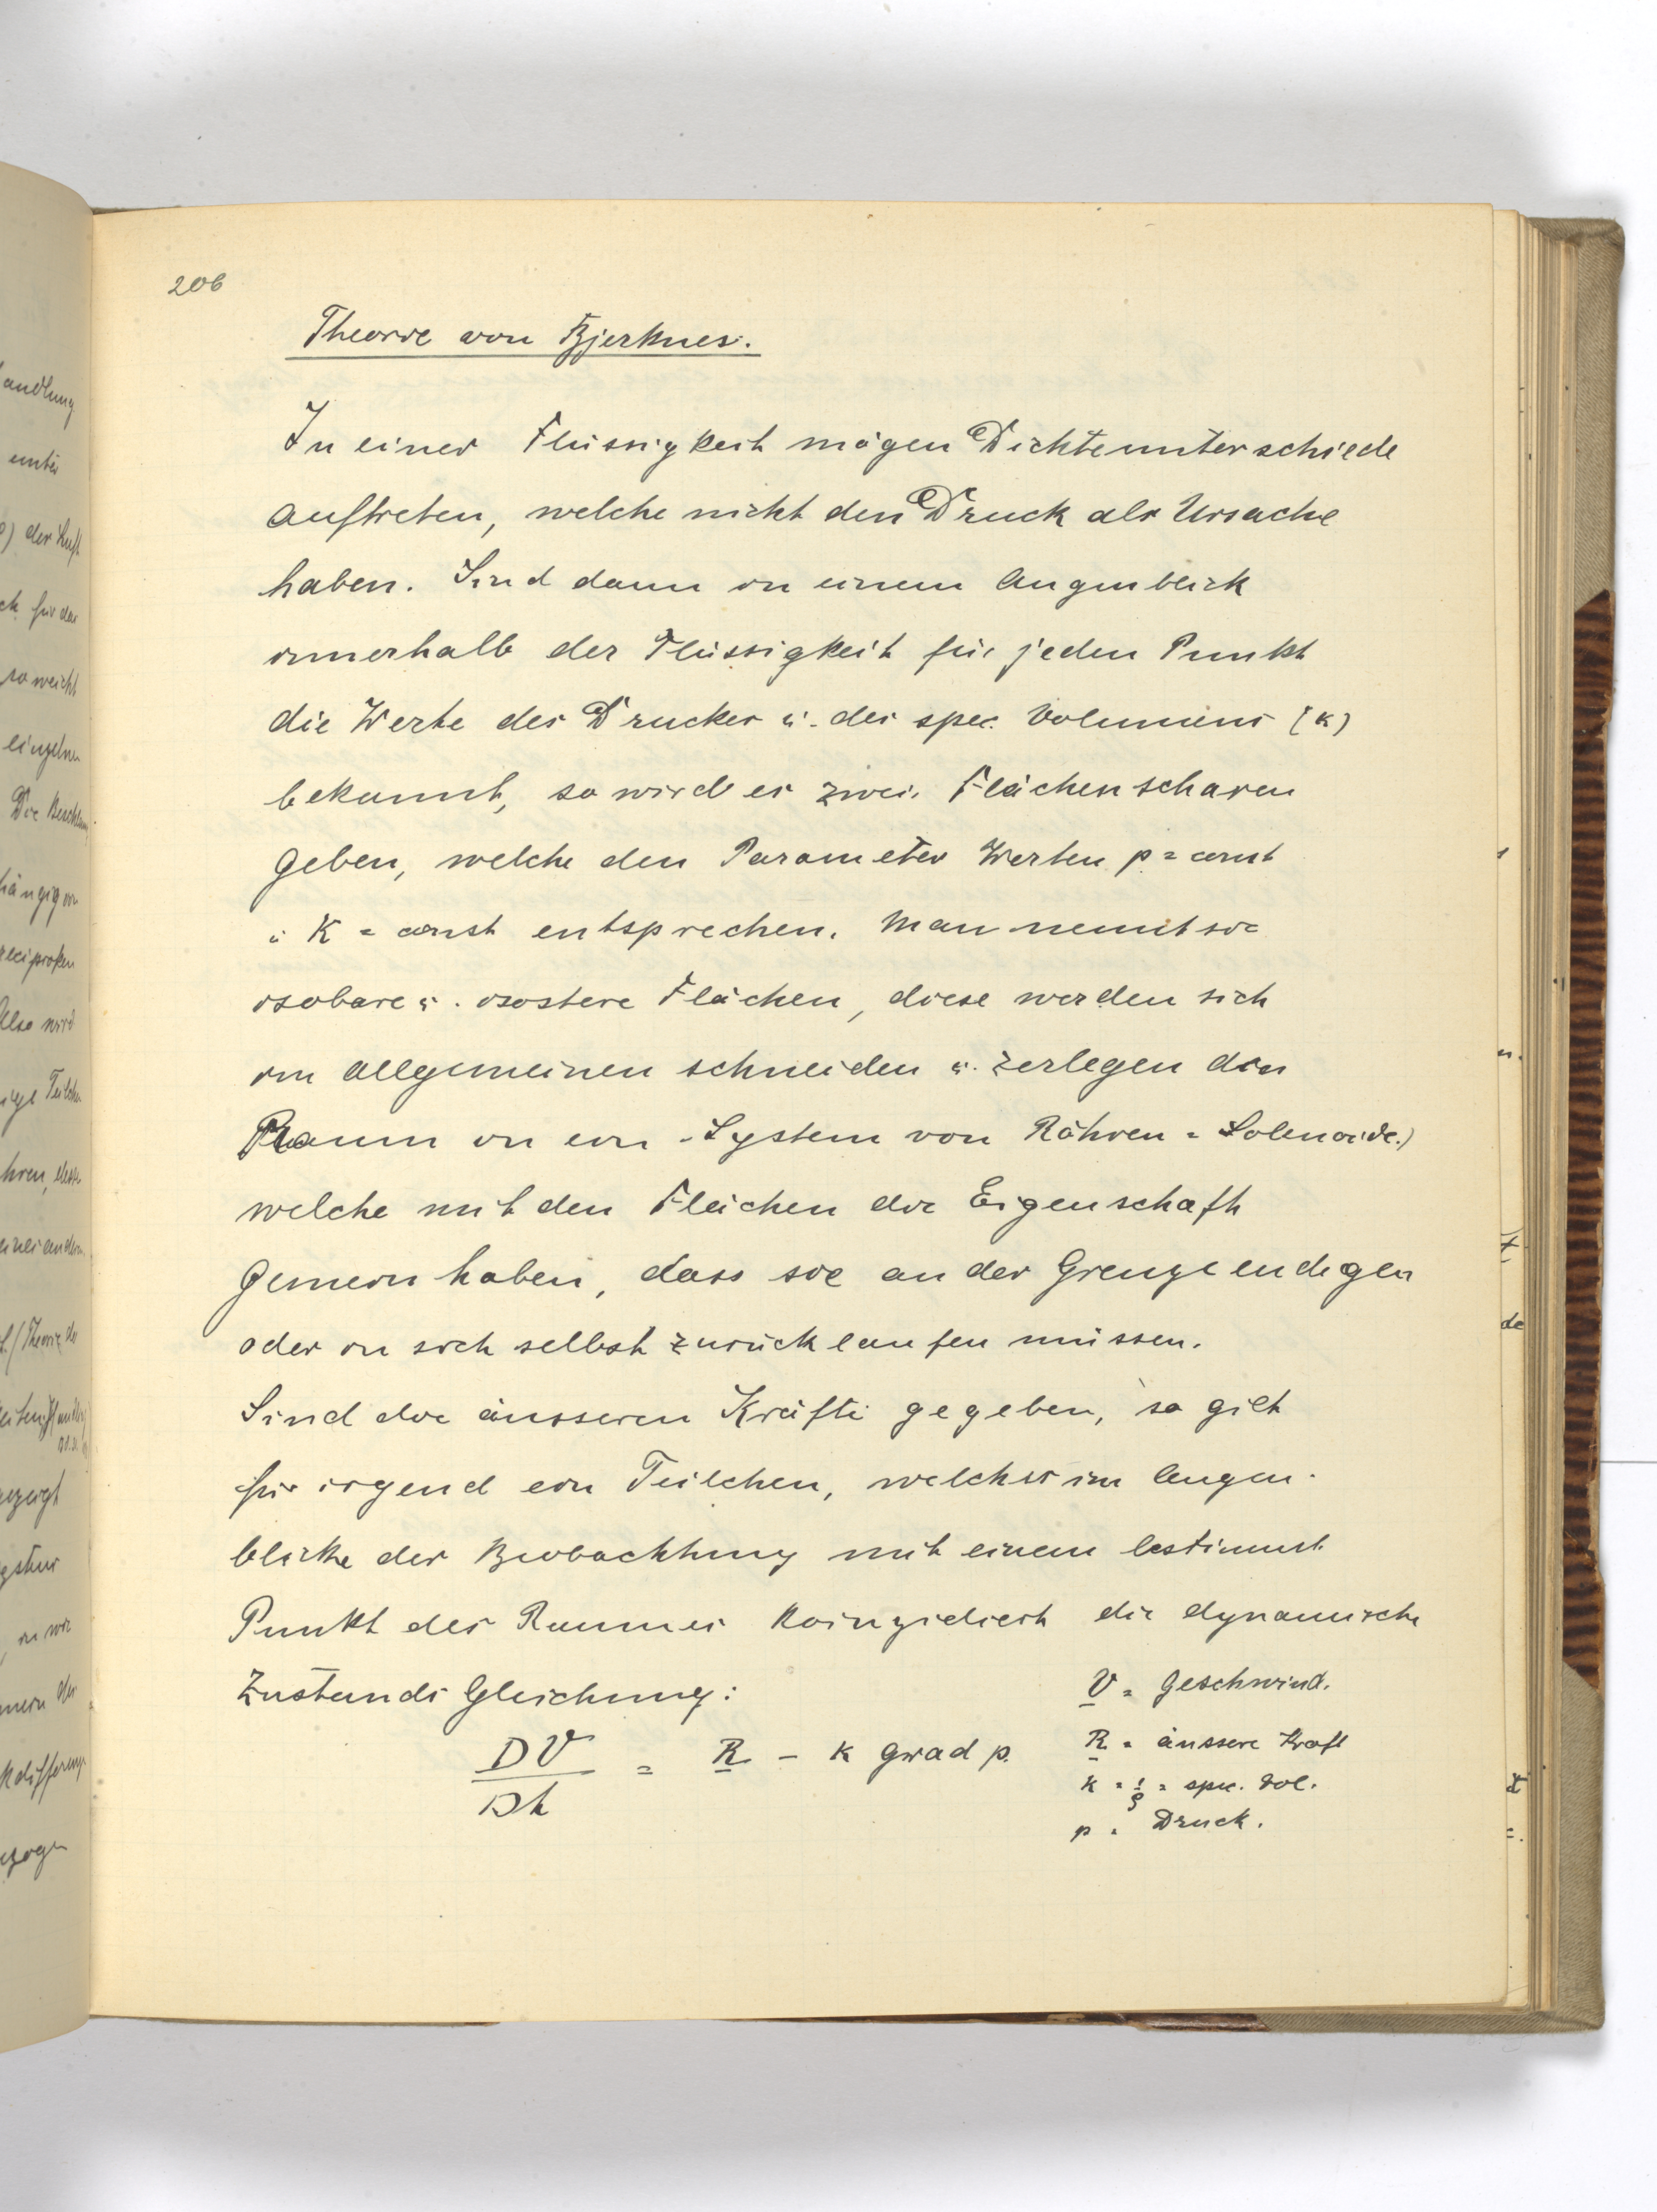 206
Theorie von Bjerknes.
In einer Flüssigkeit mögen Dichteunterschiede
auftreten, welche nicht den Druck als Ursache
haben. Sind dann in einem Augenblick
innerhalb der Flüssigkeit für jeden Punkt
die Werte des Druckes u. des spec. Volumens (k)
bekannt, so wird es zwei Flächenscharen
geben, welche den Parameter Werten p = const
u K = const entsprechen. Man nennt sie
isobare u. isostere Flächen, diese werden sich
im allgemeinen schneiden u. zerlegen den
Raum in ein System von Röhren = Solenoide.)
welche mit den Flächen die Eigenschaft
gemein haben, dass sie an der Grenze endigen
oder in sich selbst zurücklaufen müssen.
Sind die äusseren Kräfte gegeben, so gilt
für irgend ein Teilchen, welches im Augen-
blicke der Beobachtung mit einem bestimmt.
Punkt des Raumes koinzidiert die dynamische
Zustands Gleichung:
V = Geschwind.
DV/Dt = R - k grad p.
R = äussere Kraft
k = 1/ρ = spec. Vol.
p = Druck.
andlung
unter
der Luft
für das
so weicht
einzelnen
hängig von
reciproken
Also wird
Teilchen
hren, deren
eines andern
gezeigt
in wir
kdifferenz